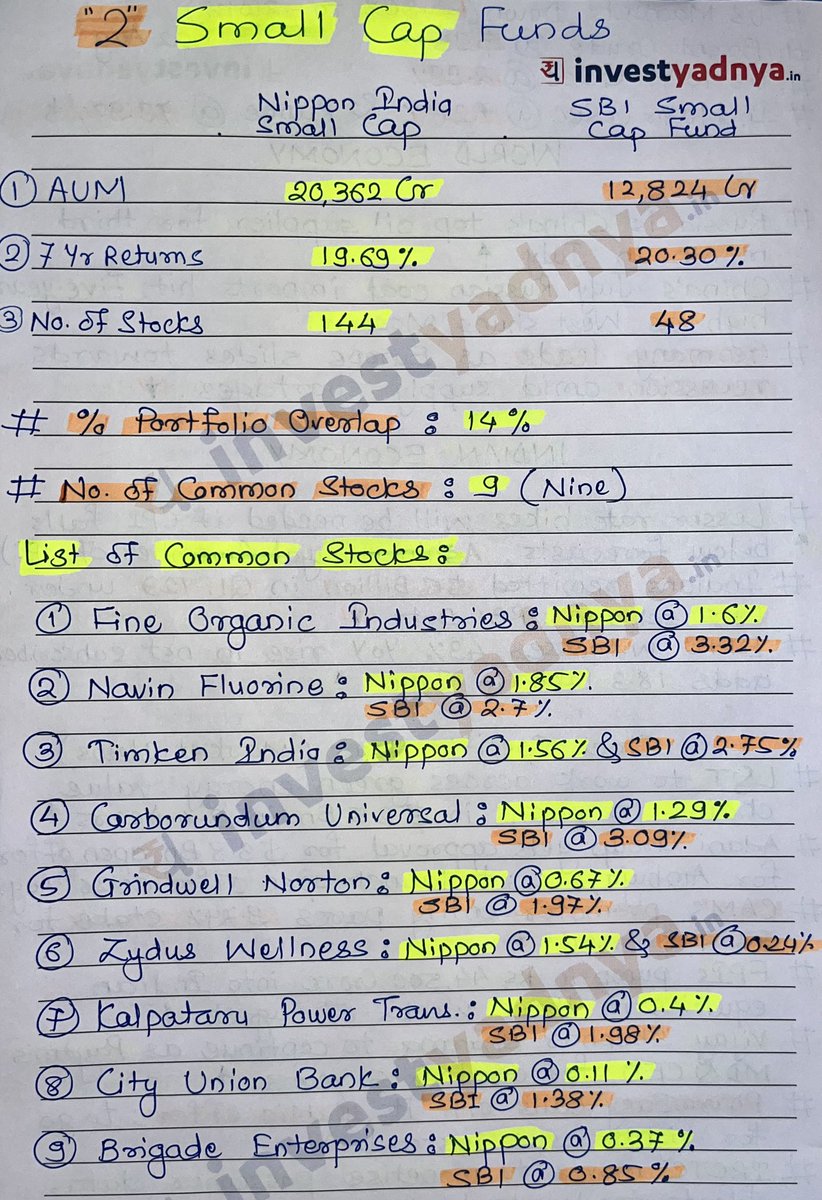 "2" Small Cap Funds
य investyadnya.in
Nippon India SBI Small
Small Cap Cap Fund
① AUM 20,362 Cr 12,824 Cr
② 7 Yr Returns 19.69% 20.30%
③ No. of Stocks 144 48
# % Portfolio Overlap : 14%
# No. of Common Stocks : 9 (Nine)
List of Common Stocks:
① Fine Organic Industries : Nippon @ 1.6%
SBI @ 3.32%
② Navin Fluorine : Nippon @ 1.85%
SBI @ 2.7%
③ Timken India : Nippon @ 1.56% & SBI @ 2.75%
④ Carborundum Universal : Nippon @ 1.29%
SBI @ 3.09%
⑤ Grindwell Norton : Nippon @ 0.67%
SBI @ 1.97%
⑥ Zydus Wellness : Nippon @ 1.54% & SBI @ 0.24%
⑦ Kalpataru Power Trans. : Nippon @ 0.4%
SBI @ 1.98%
⑧ City Union Bank : Nippon @ 0.11%
SBI @ 1.38%
⑨ Brigade Enterprises : Nippon @ 0.37%
SBI @ 0.85%